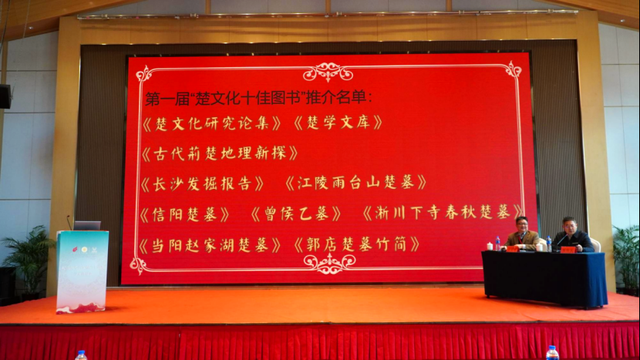 第一届“楚文化十佳图书”推介名单：
《楚文化研究论集》《楚学文库》
《古代荆楚地理新探》
《长沙发掘报告》 《江陵雨台山楚墓》
《信阳楚墓》 《曾侯乙墓》 《淅川下寺春秋楚墓》
《当阳赵家湖楚墓》《郭店楚墓竹简》